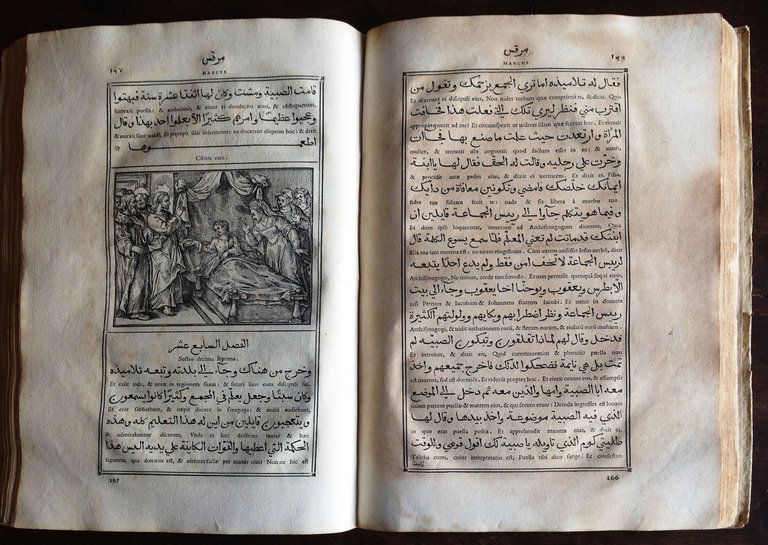 مرقس
MARCVS
فقال له تلاميذه اما تري الجمع يزحمك وتقول من
Et dixerunt ei discipuli eius, Non uides turbam quae comprimit te, & dicis, Quis
اقترب مني فنظر ليري تلك التي فعلت هذا فخافت
appropinquauit ad me? Et circunspexit ut uideret illam quae fecerat hoc. Et timuit
المراة وارتعدت حيث علمت ما صنع بها فجاات
mulier, & tremuit ubi cognouit quod factum esset in ea: & uenit,
وخرت علي رجليه وقالت له الحق فقال لها يا ابنة
& procidit ante pedes eius, & dixit ei ueritatem. Et dixit ei, Filia,
ايمانك خلصك فامضي وتكونين معافاة من دايك
fides tua saluam fecit te: uade & sis libera à morbo tuo.
وفيما هو يتكلم جاوا الي رييس الجماعة قايلين ان
Et dum ipse loqueretur, uenerunt ad Archisynagogum dicentes, Quia
ابنتك قد ماتت لم تعني المعلم فلما سمع يسوع الكلمة قال
filia tua iam mortua est: ne uexes magistrum. Cum autem audisset Iesus uerbum, dixit
لرييس الجماعة لا تخف امن فقط ولم يدع احدا يتبعه
Archisynagogo, Ne timeas, crede tantummodo. Et non permisit quenquam sequi eum,
الا بطرس ويعقوب ويوحنا اخا يعقوب وجاء الي بيت
nisi Petrum & Iacobum & Iohannem fratrem Iacobi. Et uenit in domum
رييس الجماعة ونظر اضطرابهم وبكايهم وولولتهم الكثيرة
Archisynagogi, & uidit turbationem eorum, & fletum eorum, & eiulatum eorum multum.
فدخل وقال لهم لماذا تقلقون وتبكون الصبية لم
Et introiuit, & dixit eis, Quid commouemini & ploratis? puella non
تمت بل هي نايمة فضحكوا لذلك فاخرج جميعهم واخذ
est mortua, sed est dormiens. Et riserunt propter hoc. Et eiecit omnes eos, & assumpsit
معه ابا الصبية وامها والذين معه ثم دخل الي الموضع
secum patrem puellae & matrem eius, & qui secum erant: Deinde ingressus est locum
الذي فيه الصبية موضوعة واخذ بيدها وقال لها
in quo erat puella posita. Et apprehendit manum eius, & dixit ei,
طليثي كوم الذي تاويله يا صبية لك اقول قومي وللوقت
Talitha cumi, cuius interpretatio est, Puella tibi dico surge. Et confestim
قامت
166
مرقس
MARCVS
قامت الصبية ومشت وكان لها اثنتا عشرة سنة فبهتوا
surrexit puella: & ambulauit, & erant ei duodecim anni, & obstupuerunt,
وتعجبوا عظيما وامرهم كثيرا الا يعلموا احد بهذا وقال
& mirati sunt ualde. Et praecepit illis uehementer ne docerent aliquem hoc: & dixit
اطعموها
Cibate eam.
الفصل السابع عشر
Sectio decima septima.
وخرج من هناك وجاء الي بلدته وتبعه تلاميذه
Et exiit inde, & uenit in regionem suam: & secuti sunt eum discipuli sui.
وكان سبتا وجعل يعلم في المجمع وكثيرا كانوا يسمعون
Et erat sabbathum, & cœpit docere in synagoga: & multi audiebant,
ويتعجبون قايلين من اين له هذا التعليم كله وهذه
& admirabantur dicentes, Vnde ei haec doctrina tota: & haec
الحكمة التي اعطيها والقوات الكاينة علي يديه اليس هذا
sapientia, quae donata est, & uirtutes factae per manus eius? Nonne hic est
167